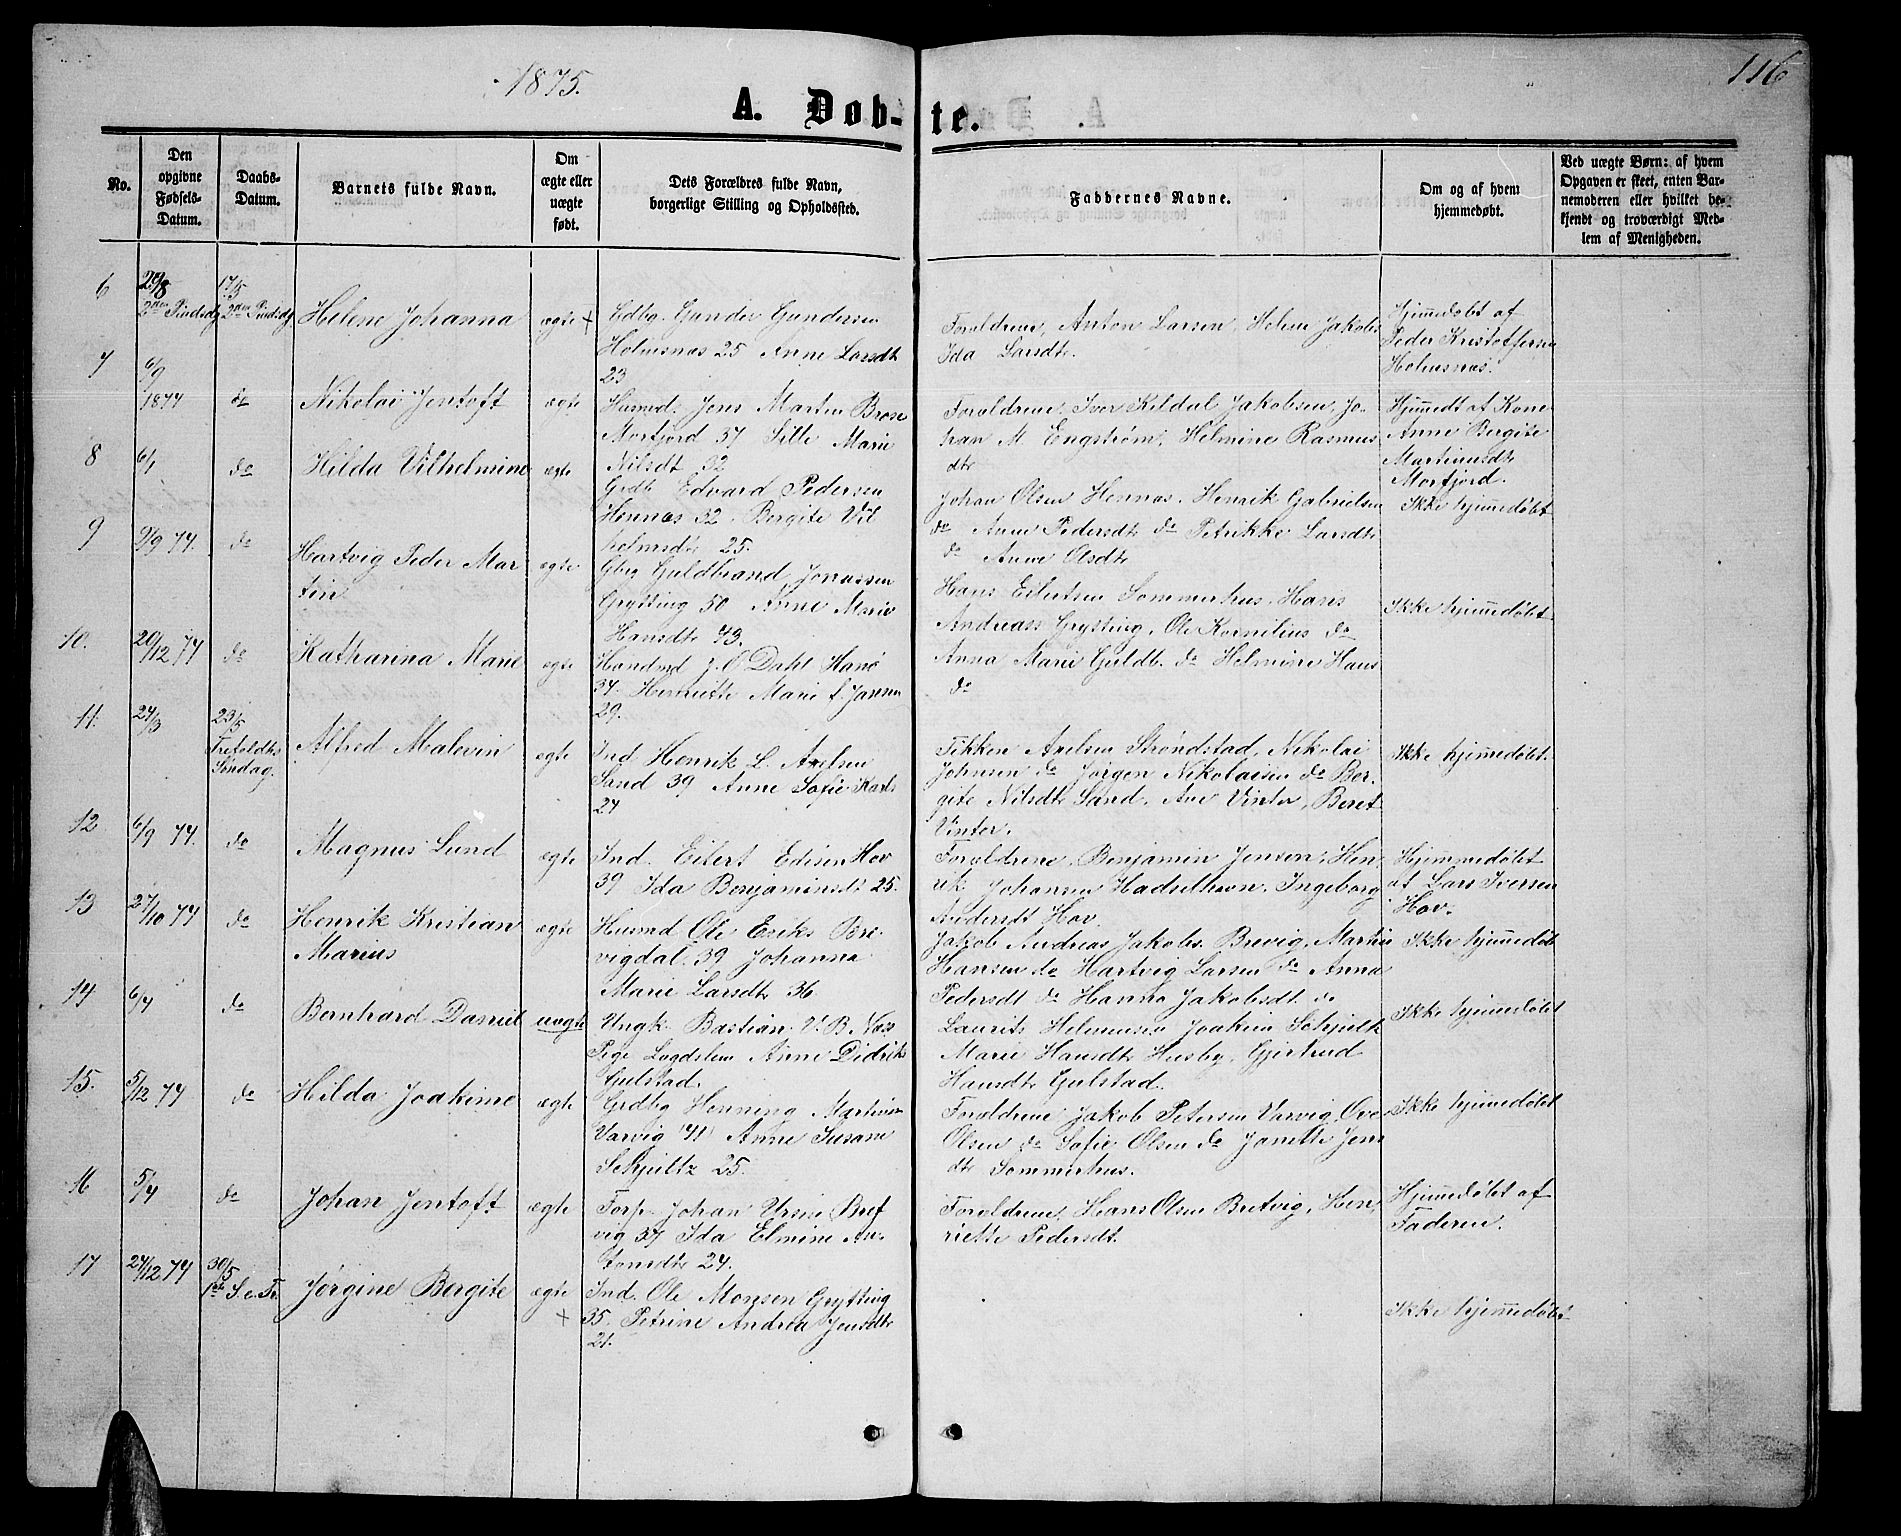 1875.
116
A. Døb-te.
No.
Den opgivne Fødsels-Datum.
Daabs-Datum.
Barnets fulde Navn.
Om ægte eller uægte født.
Dets Forældres fulde Navn, borgerlige Stilling og Opholdssted.
Faddernes Navne.
Om og af hvem hjemmedøbt.
Ved uægte Børn: af hvem Opgaven er skeet, enten Barnemoderen eller hvilket bekjendt og troværdigt Medlem af Menigheden.
6
17/5
2den Pindsdg
Helene Johanna
ægte +
Gdbg. Gunder Gundersen
Holmsnæs 25 Anne Larsdt
23
Forældrene, Anton Larsen, Helene Jakobs
Ida Larsdtr.
Hjemmedøbt af
Peder Kristoffersen
Holmsnæs.
7
6/9
1874
do
Nikolai Jentoft
ægte
Husmd. Jens Martin Brose
Morfjord 37 Sille Marie
Nilsdt 32
Forældrene, Iver Kildal Jakobsen, Jo-
han M. Engstrøm, Helmine Rasmus
dtr
Hjemmedt af Kone
Anne Bergite
Martinusdtr
Morfjord.
8
6/1
do
Hilda Vilhelmine
ægte
Grdb. Edvard Pedersen
Hennæs 32. Bergite Vil
helmsdtr 25.
Johan Olsen Hennæs. Henrik Gabrielsen
do Anne Pedersdtr do Petrikke Larsdtr
do Anne Olsdtr
Ikke hjemmedøbt
9
9/9 74.
do
Hartvig Peder Mar
tin
ægte
Gbrg Guldbrand Jonassen
Grytting 50 Anne Marie
Hansdtr 43.
Hans Eilertsen Sommerhus. Hans
Andreass Grytting, Ole Kornilius do
Anna Marie Guldb. do Helmine Hans
do
Ikke hjemmedøbt
10.
20/12 74
do
Katharina Marie
ægte
Handmd J. O Dahl Hanø
37. Henriette Marie f. Jansen
29.
11.
24/3
23/5
Trefoldhs
Søndag.
Alfred Malevin
ægte
Ind Henrik L. Axelsen
Sand 39 Anne Sofie Karls
24
Fikken Axelsen Strøndstad, Nikolai
Johnsen do Jørgen Nikolaisen do Ber-
gite Nilsdtr Sand. Ane Vinter, Beret
Vinter.
Ikke hjemmedøbt.
12
6/9 74.
do
Magnus Lund
ægte
Ind. Eilert Edisen Hov
39 Ida Benjaminsdt 25.
Forældrene, Benjamin Jensen, Hen
rik Johansen Hadselhavn. Ingeborg
Andersdt Hov.
Hjemmedøbt
af Lars Iversen
Hov.
13
27/10 74
do
Henrik Kristian
Marius
ægte
Husmd Ole Eriks Bre
vigdal 39 Johanna
Marie Larsdtr 36
Jakob Andreas Jakobs. Brevig, Martin
Hansen do Hartvig Larsen do Anna
Pedersdt do Hanna Jakobsdt do
Ikke hjemmedøbt
14
6/4
do
Bernhard Daniel
uægte
Ungk. Bastian V. B. Næss
Pige Lagdslem Anne Didriks
Gulstad.
Laurits Helmersen Joakim Schjelt
Marie Hansdtr Husby, Gjertrud
Hansdtr Gulstad.
Ikke hjemmedøbt
15.
5/12 74
do
Hilda Joakime
ægte
Grdbg Henning Martinsen
Varvig 41 Anne Susane
Schjultz 25.
Forældrene Jakob Petersen Varvig, Ove
Olsen do Sofie Olsen do Janette Jens
dtr Sommerhus.
Ikke hjemmedøbt
16
5/4
do
Johan Jentoft
ægte
Forp. Johan Ursin Bret
vig 37 Ida Elmine An-
tonsdtr 24.
Forældrene, Hans Olsen Bretvig, Hen,
riette Pedersdt.
Hjemmedøbt af
Faderen.
17
27/12 74
30/5
1ste S. e. Tr.
Jørgine Bergite
ægte
+
Ind. Ole Monsen Grytting
35. Petrine Andrea Jensdtr
21.
Ikke hjemmedøbt